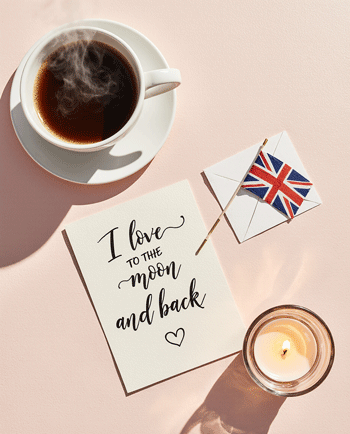 I love
TO THE
moon
and back